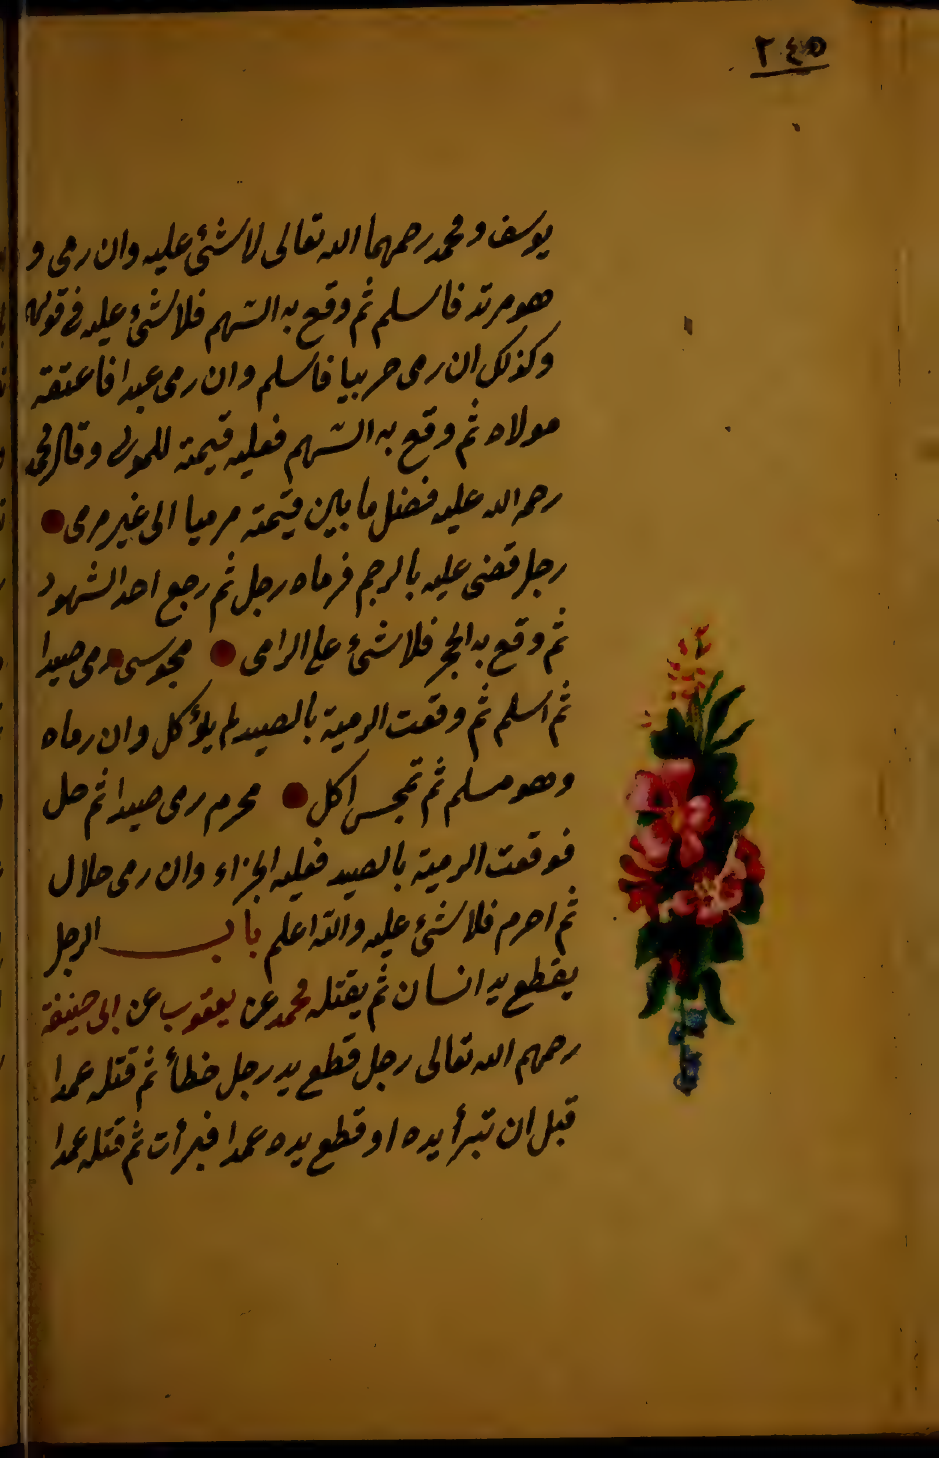 ٢٤٥
يوسف ومحمد رحمهما الله تعالى لا شئ عليه وان رمى و
هو مرتد فاسلم ثم وقع به السهم فلا شئ عليه فى قولهم
وكذلك ان رمى حربيا فاسلم وان رمى عبدا فاعتقه
مولاه ثم وقع به السهم فعليه قيمته للمولى وقال محمد
رحمه الله عليه فضل ما بين قيمته مرميا الى غير مرمى
رجل قضى عليه بالرجم فرماه رجل ثم رجع احد الشهود
ثم وقع به الحجر فلا شئ على الرامى مجوسى رمى صيدا
ثم اسلم ثم وقعت الرمية بالصيد لم يؤكل وان رماه
وهو مسلم ثم تمجس اكل محرم رمى صيدا ثم حل
فوقعت الرمية بالصيد فعليه الجزاء وان رمى حلال
ثم احرم فلا شئ عليه والله اعلم باب الرجل
يقطع يد انسان ثم يقتله محمد عن يعقوب عن ابى حنيفة
رحمهم الله تعالى رجل قطع يد رجل خطأ ثم قتله عمدا
قبل ان تبرأ يده او قطع يده عمدا فبرأت ثم قتله عمدا